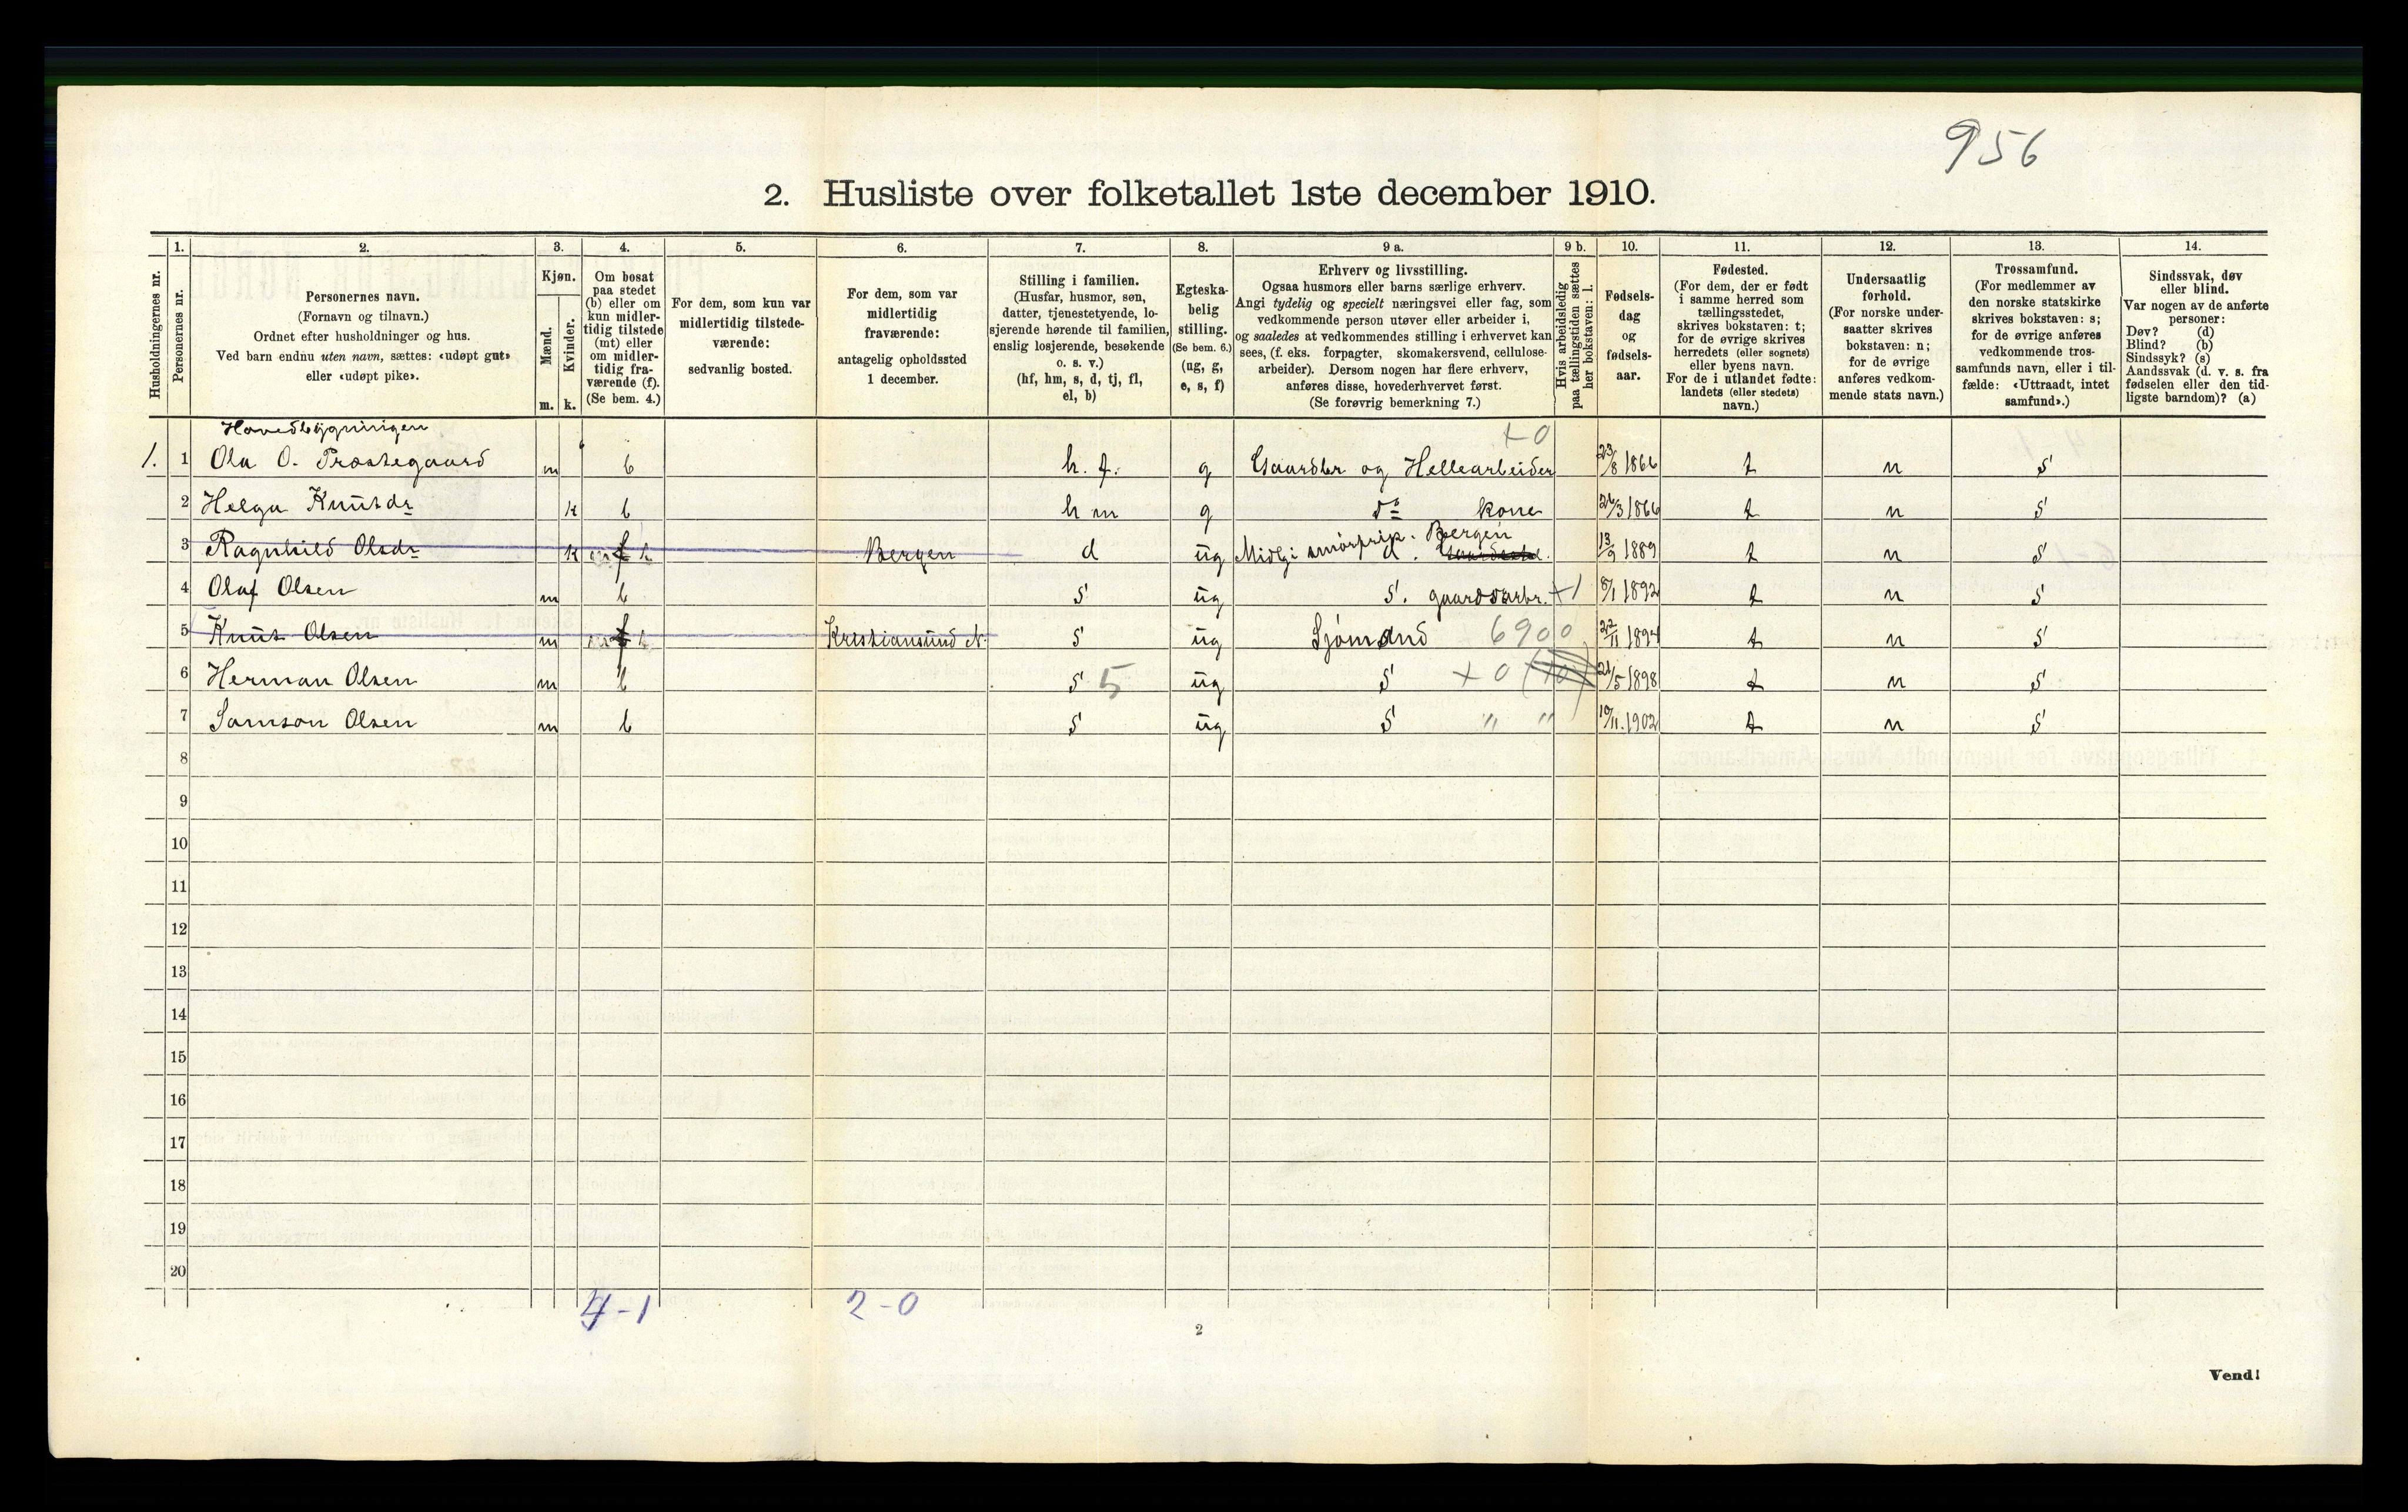 956
2. Husliste over folketallet 1ste december 1910.
Husholdningernes nr.
1.
Personernes nr.
2.
Personernes navn.
(Fornavn og tilnavn.)
Ordnet efter husholdninger og hus.
Ved barn endnu uten navn, sættes: «udøpt gut»
eller «udøpt pike».
3.
Kjøn.
Mænd.
m.
Kvinder.
k.
4.
Om bosat
paa stedet
(b) eller om
kun midler-
tidig tilstede
(mt) eller
om midler-
tidig fra-
værende (f).
(Se bem. 4.)
5.
For dem, som kun var
midlertidig tilstede-
værende:
sedvanlig bosted.
6.
For dem, som var
midlertidig
fraværende:
antagelig opholdssted
1 december.
7.
Stilling i familien.
(Husfar, husmor, søn,
datter, tjenestetyende, lo-
sjerende hørende til familien,
enslig losjerende, besøkende
o. s. v.)
(hf, hm, s, d, tj, fl,
el, b)
8.
Egteska-
belig
stilling.
(Se bem. 6.)
(ug, g,
e, s, f)
9 a.
Erhverv og livsstilling.
Ogsaa husmors eller barns særlige erhverv.
Angi tydelig og specielt næringsvei eller fag, som
vedkommende person utøver eller arbeider i,
og saaledes at vedkommendes stilling i erhvervet kan
sees, (f. eks. forpagter, skomakersvend, cellulose-
arbeider). Dersom nogen har flere erhverv,
anføres disse, hovederhvervet først.
(Se forøvrig bemerkning 7.)
9 b.
Hvis arbeidsledig
paa tællingstiden sættes
her bokstaven: l.
10.
Fødsels-
dag
og
fødsels-
aar.
11.
Fødested.
(For dem, der er født
i samme herred som
tællingsstedet,
skrives bokstaven: t;
for de øvrige skrives
herredets (eller sognets)
eller byens navn.
For de i utlandet fødte:
landets (eller stedets)
navn.)
12.
Undersaatlig
forhold.
(For norske under-
saatter skrives
bokstaven: n;
for de øvrige
anføres vedkom-
mende stats navn.)
13.
Trossamfund.
(For medlemmer av
den norske statskirke
skrives bokstaven: s;
for de øvrige anføres
vedkommende tros-
samfunds navn, eller i til-
fælde: «Uttraadt, intet
samfund».)
14.
Sindssvak, døv
eller blind.
Var nogen av de anførte
personer:
Døv? (d)
Blind? (b)
Sindssyk? (s)
Aandssvak (d. v. s. fra
fødselen eller den tid-
ligste barndom)? (a)
Hovedbygningen
+0
1. 1 Ola O. Præstegaard m b h. f. g Gaardbr og Hellearbeider 23/8 1866 t n S
2 Helga Knutsdr k b h m g do kone 26/3 1866 t n S
3 Ragnhild Olsdr k f Bergen d ug Midl. i Bergen d. 13/9 1889 t n S
4 Olaf Olsen m b S ug S. gaardsarbr. +1 8/1 1892 t n S
5 Knut Olsen m f Kristiansund N. S ug Sjømand 6900 22/11 1894 t n S
6 Herman Olsen m b S 5 ug S +0 21/5 1898 t n S
7 Samson Olsen m b S ug S " " 10/11 1902 t n S
8
9
10
11
12
13
14
15
16
17
18
19
20
4-1 2-0
2
Vend!